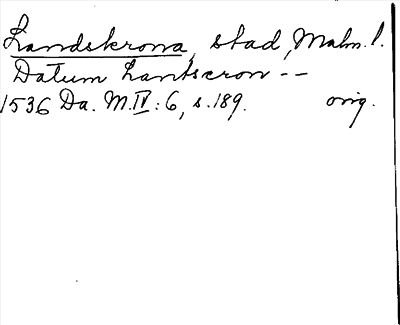 Landskrona, stad, Malm. l.
Datum Lantscron --
1536 Da. M. IV: 6, s. 189. orig.